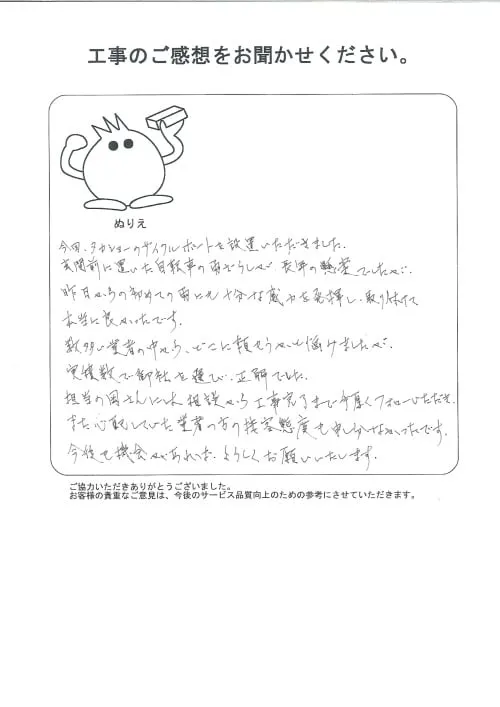 工事のご感想をお聞かせください。
ぬりえ
今回、タカショーのサイクルポートを設置いただきました。
玄関前に置いた自転車の雨ざらしが長年の懸案でしたが、
昨日からの初めての雨にも十分な威力を発揮し、取り付けて
本当に良かったです。
数多い業者の中から、どこに頼もうかと悩みましたが、
実績数で御社を選び、正解でした。
担当の岡さんには相談から工事完了まで手厚くフォローいただき、
また心配していた業者の方の接客態度も申し分なかったです。
今後も機会があれば、よろしくお願いいたします。
ご協力いただきありがとうございました。
お客様の貴重なご意見は、今後のサービス品質向上のための参考にさせていただきます。